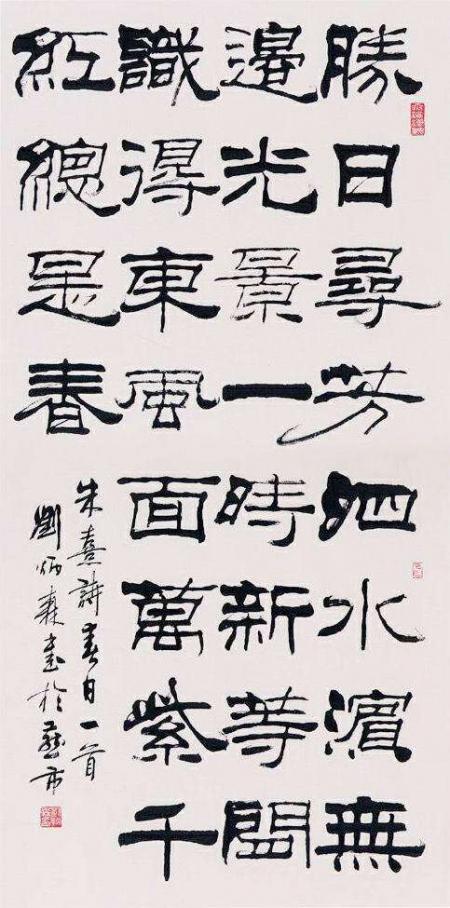 勝日尋芳泗水濱無
邊光景一時新等閒
識得東風面萬紫千
紅總是春
朱熹詩春日一首
劉炳森書於燕市